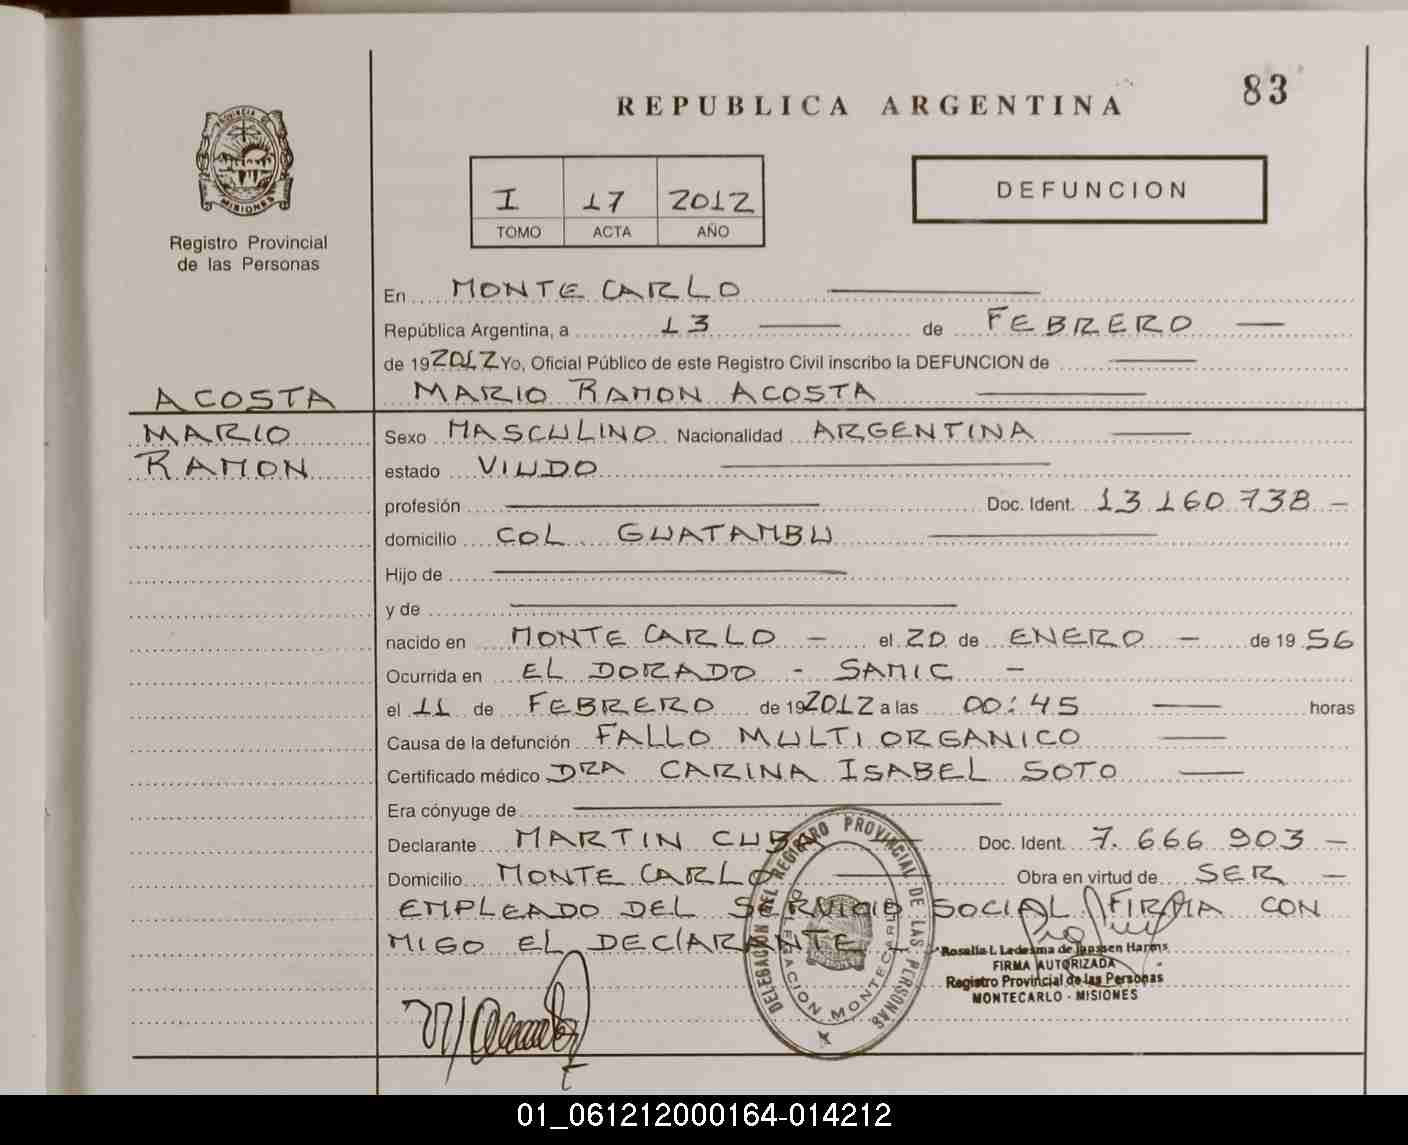 83
REPUBLICA ARGENTINA
PROVINCIA DE
MISIONES
Registro Provincial
de las Personas
I 17 2012
TOMO ACTA AÑO
DEFUNCION
En MONTE CARLO
República Argentina, a 13 de FEBRERO
de 192012 Yo, Oficial Público de este Registro Civil inscribo la DEFUNCION de
ACOSTA MARIO RAMON ACOSTA
MARIO Sexo MASCULINO Nacionalidad ARGENTINA
RAMON estado VIUDO
profesión Doc. Ident. 13 160 738 -
domicilio COL GUATAMBU
Hijo de
y de
nacido en MONTE CARLO - el 20 de ENERO - de 19 56
Ocurrida en EL DORADO - SAMIC -
el 11 de FEBRERO de 192012 a las 00:45 horas
Causa de la defunción FALLO MULTIORGANICO
Certificado médico DRA CARINA ISABEL SOTO
Era cónyuge de
Declarante MARTIN CUBA Doc. Ident. 7. 666 903 -
Domicilio MONTE CARLO Obra en virtud de SER -
EMPLEADO DEL SERVICIO SOCIAL FIRMA CON
MIGO EL DECLARANTE -
DELEGACION DEL REGISTRO PROVINCIAL DE LAS PERSONAS
DELEGACION MONTECARLO
Rosalia I. Ledesma de Janssen Harms
FIRMA AUTORIZADA
Registro Provincial de las Personas
MONTECARLO - MISIONES
01_061212000164-014212